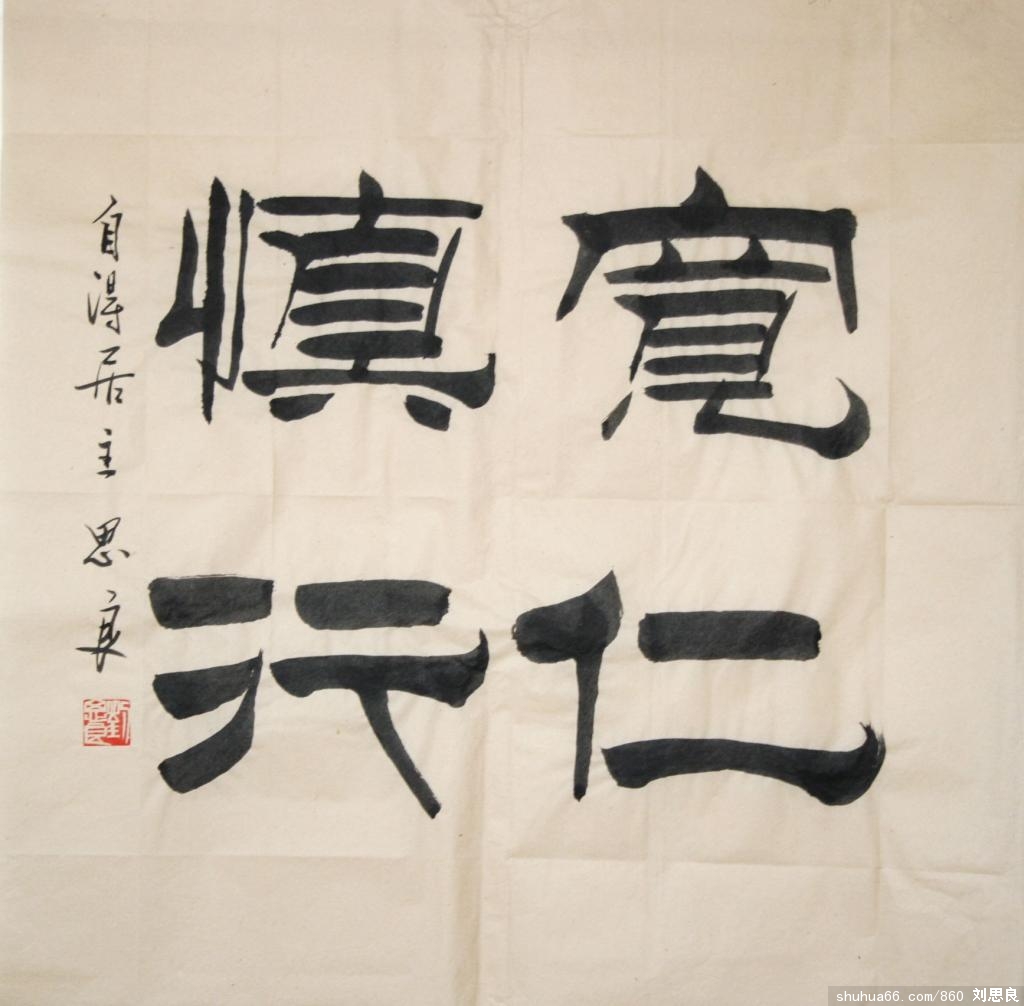 寬仁
慎行
自得居主思良
劉思良
shuhua66.com/860 刘思良